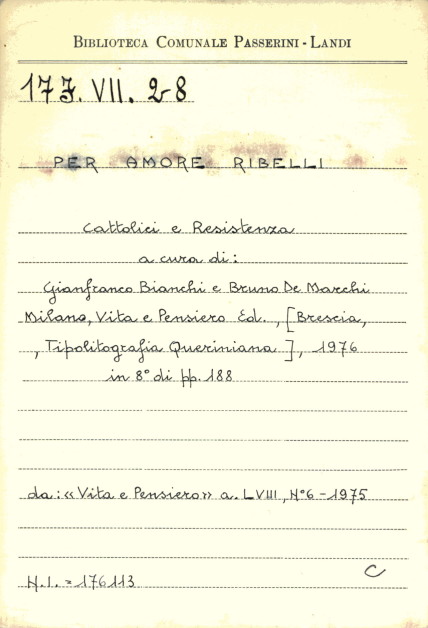 BIBLIOTECA COMUNALE PASSERINI-LANDI
17 J. VII. 2-8
PER AMORE RIBELLI
Cattolici e Resistenza
a cura di:
Gianfranco Bianchi e Bruno De Marchi
Milano, Vita e Pensiero Ed., [Brescia,
, Tipolitografia Queriniana ], 1976
in 8° di pp. 188
da: «Vita e Pensiero» a. LVIII, N°6-1975
N.I. = 176113
C